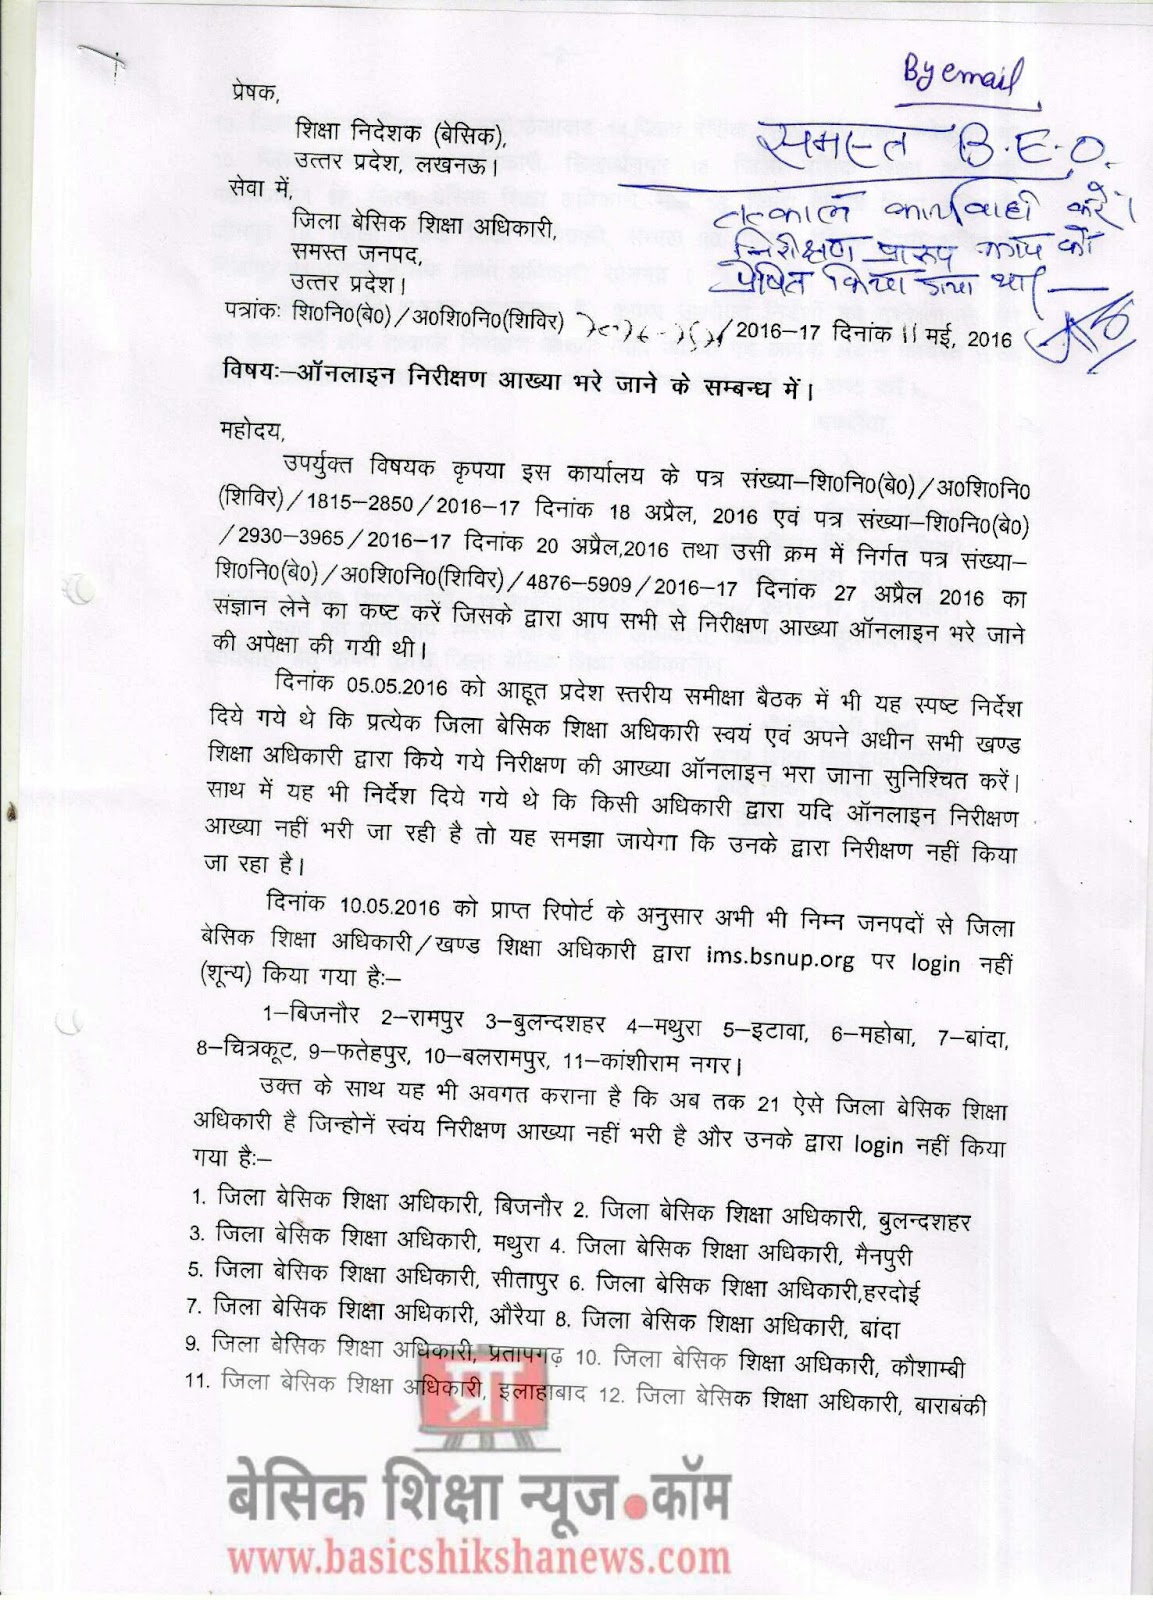 By email
प्रेषक,
समस्त B.E.O.
शिक्षा निदेशक (बेसिक),
उत्तर प्रदेश, लखनऊ।
तत्काल कार्यवाही करें।
सेवा में,
जिला बेसिक शिक्षा अधिकारी,
निरीक्षण प्रारूप को
समस्त जनपद,
प्रेषित किया गया था।
उत्तर प्रदेश।
पत्रांकः शि0नि0(बे0)/अ0शि0नि0(शिविर) /2016–17 दिनांक 11 मई, 2016
विषयः–ऑनलाइन निरीक्षण आख्या भरे जाने के सम्बन्ध में।
महोदय,
उपर्युक्त विषयक कृपया इस कार्यालय के पत्र संख्या–शि0नि0(बे0)/अ0शि0नि0
(शिविर)/1815–2850/2016–17 दिनांक 18 अप्रैल, 2016 एवं पत्र संख्या–शि0नि0(बे0)
/2930–3965/2016–17 दिनांक 20 अप्रैल,2016 तथा उसी क्रम में निर्गत पत्र संख्या–
शि0नि0(बे0)/अ0शि0नि0(शिविर)/4876-5909/2016–17 दिनांक 27 अप्रैल 2016 का
संज्ञान लेने का कष्ट करें जिसके द्वारा आप सभी से निरीक्षण आख्या ऑनलाइन भरे जाने
की अपेक्षा की गयी थी।
दिनांक 05.05.2016 को आहूत प्रदेश स्तरीय समीक्षा बैठक में भी यह स्पष्ट निर्देश
दिये गये थे कि प्रत्येक जिला बेसिक शिक्षा अधिकारी स्वयं एवं अपने अधीन सभी खण्ड
शिक्षा अधिकारी द्वारा किये गये निरीक्षण की आख्या ऑनलाइन भरा जाना सुनिश्चित करें।
साथ में यह भी निर्देश दिये गये थे कि किसी अधिकारी द्वारा यदि ऑनलाइन निरीक्षण
आख्या नहीं भरी जा रही है तो यह समझा जायेगा कि उनके द्वारा निरीक्षण नहीं किया
जा रहा है।
दिनांक 10.05.2016 को प्राप्त रिपोर्ट के अनुसार अभी भी निम्न जनपदों से जिला
बेसिक शिक्षा अधिकारी/खण्ड शिक्षा अधिकारी द्वारा ims.bsnup.org पर login नहीं
(शून्य) किया गया हैः–
1–बिजनौर 2–रामपुर 3–बुलन्दशहर 4–मथुरा 5–इटावा, 6–महोबा, 7–बांदा,
8–चित्रकूट, 9–फतेहपुर, 10–बलरामपुर, 11–कांशीराम नगर।
उक्त के साथ यह भी अवगत कराना है कि अब तक 21 ऐसे जिला बेसिक शिक्षा
अधिकारी है जिन्होनें स्वंय निरीक्षण आख्या नहीं भरी है और उनके द्वारा login नहीं किया
गया हैः–
1. जिला बेसिक शिक्षा अधिकारी, बिजनौर 2. जिला बेसिक शिक्षा अधिकारी, बुलन्दशहर
3. जिला बेसिक शिक्षा अधिकारी, मथुरा 4. जिला बेसिक शिक्षा अधिकारी, मैनपुरी
5. जिला बेसिक शिक्षा अधिकारी, सीतापुर 6. जिला बेसिक शिक्षा अधिकारी,हरदोई
7. जिला बेसिक शिक्षा अधिकारी, औरैया 8. जिला बेसिक शिक्षा अधिकारी, बांदा
9. जिला बेसिक शिक्षा अधिकारी, प्रतापगढ़ 10. जिला बेसिक शिक्षा अधिकारी, कौशाम्बी
11. जिला बेसिक शिक्षा अधिकारी, इलाहाबाद 12. जिला बेसिक शिक्षा अधिकारी, बाराबंकी
प्रा
बेसिक शिक्षा न्यूज.कॉम
www.basicshikshanews.com